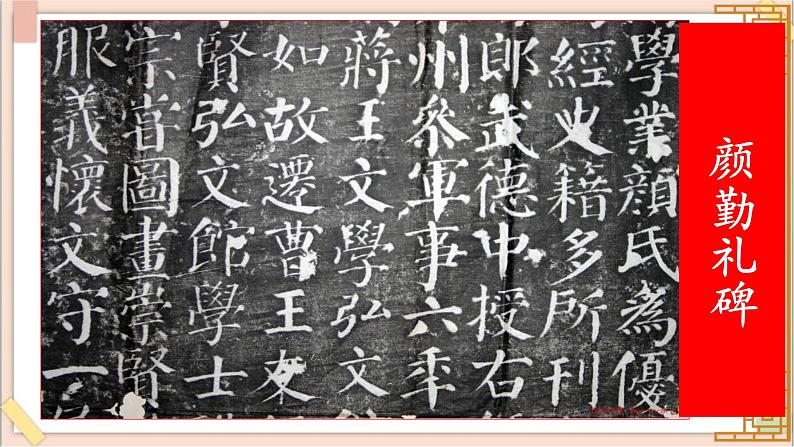 颜勤礼碑
學業顏氏為優
經史籍多所刊
郎武德中授右
州參軍事六年
蔣王文學弘文
如故遷曹王友
賢弘文館學士
宗甞圖畫崇賢
服義懷文守一